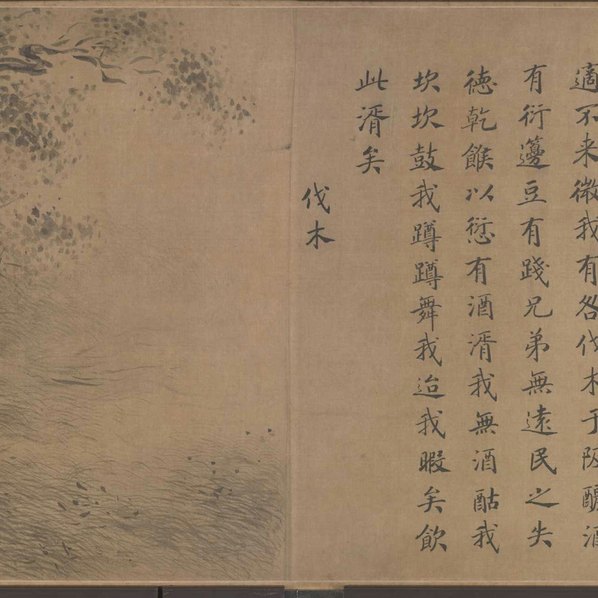 適不来微我有咎伐木于阪釃酒
有衍籩豆有踐兄弟無遠民之失
徳乾餱以愆有酒湑我無酒酤我
坎坎鼓我蹲蹲舞我迨我暇矣飲
此湑矣
伐木